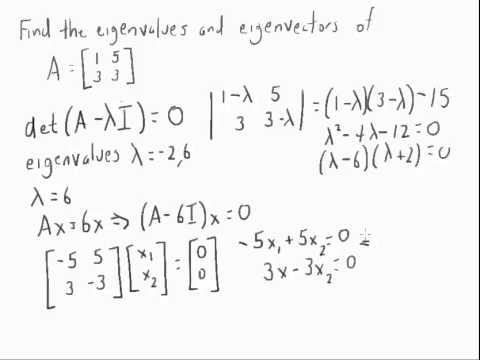 Find the eigenvalues and eigenvectors of
A = [1 5
3 3]
det(A - λI) = 0
|1-λ 5
3 3-λ| = (1-λ)(3-λ) - 15
λ² - 4λ - 12 = 0
(λ-6)(λ+2) = 0
eigenvalues λ = -2,6
λ = 6
Ax = 6x => (A - 6I)x = 0
[-5 5
3 -3] [x₁
x₂] = [0
0]
-5x₁ + 5x₂ = 0
3x - 3x₂ = 0